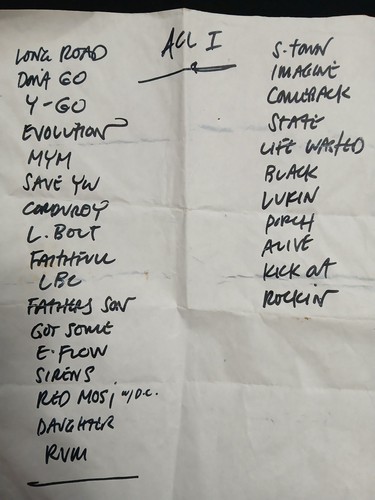 ACL I
LONG ROAD
DON'T GO
Y-GO
EVOLUTION
MYM
SAVE YW
CORDUROY
L. BOLT
FAITHFULL
LBC
FATHERS SON
GOT SOME
E-FLOW
SIRENS
RED MOS, w/D.C.
DAUGHTER
RVM
S. TOWN
IMAGINE
COMEBACK
STATE
LIFE WASTED
BLACK
LUKIN
PORCH
ALIVE
KICK OUT
ROCKIN